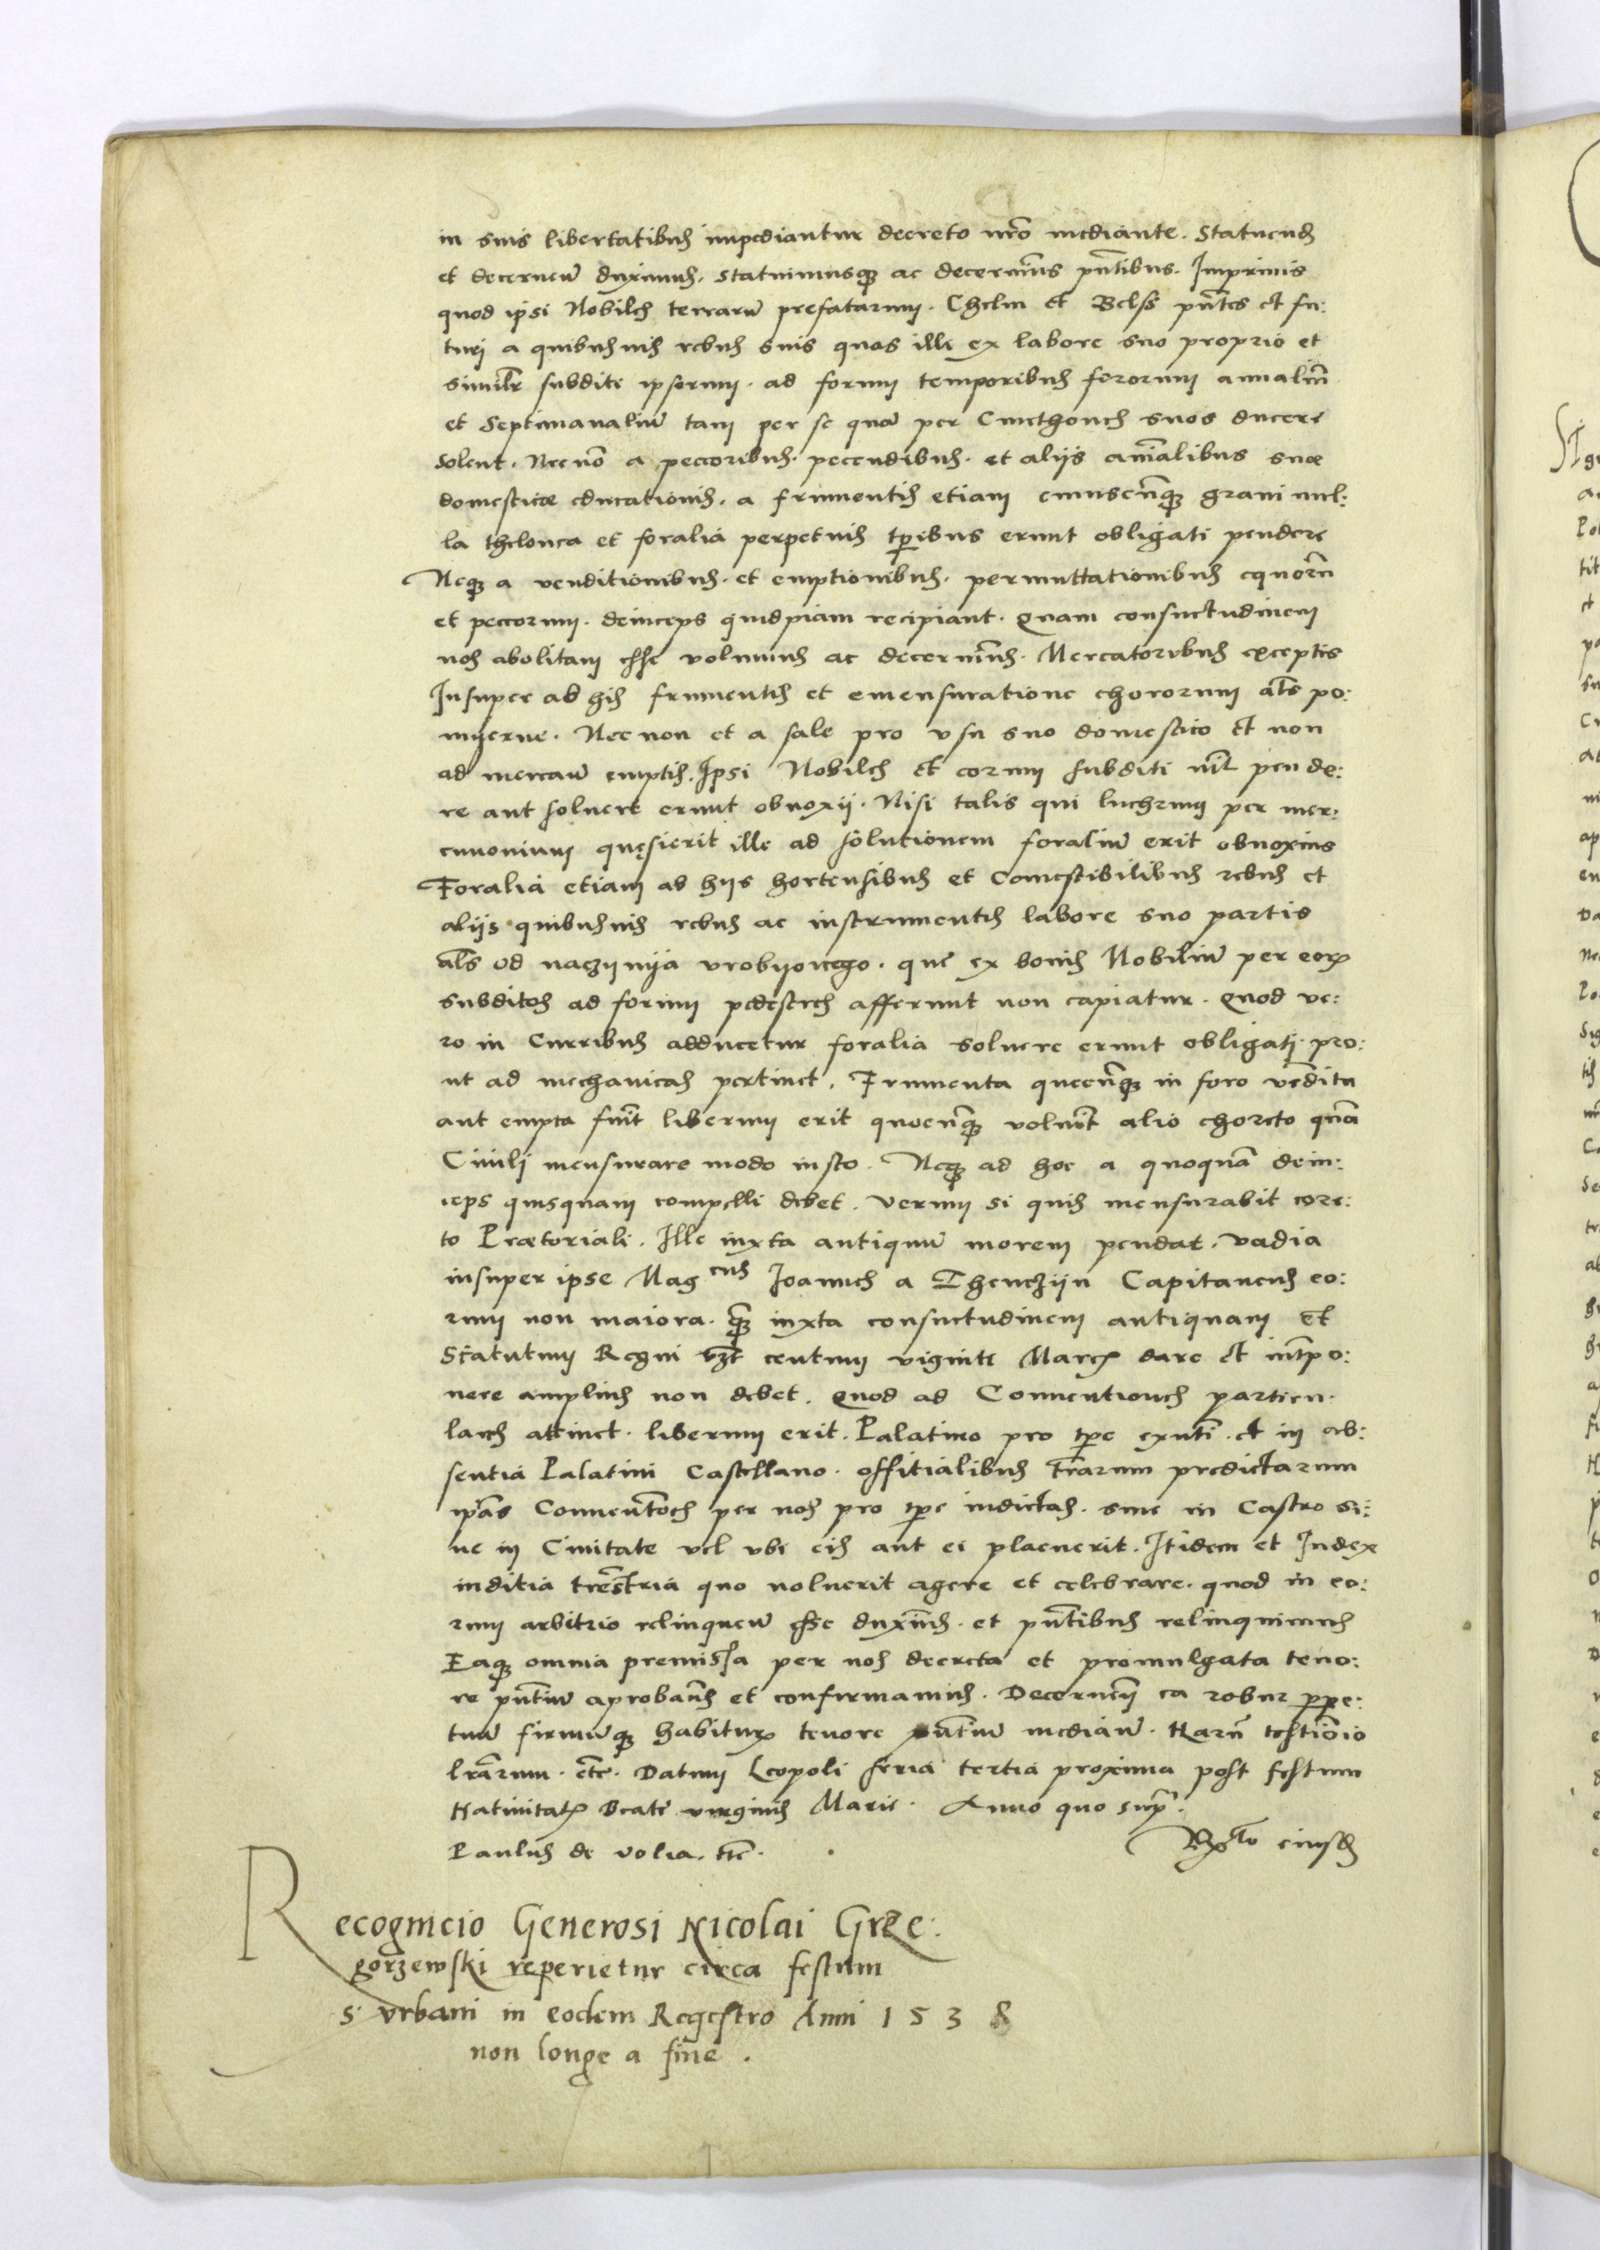 in suis libertatibus impediantur decreto nro mediante. Statuend
et decernen duximus. Statuimusq ac decernims pntibus. Imprimis
quod ipsi Nobiles terraru prefatarum. Chelm et Belss pntes et fu:
turj a quibusuis rebus suis quas ille ex labore suo proprio et
similr subditi ipsorum. ad forum temporibus fororum annaliu
et Septimanaliu tam per se qua per Cmethones suos ducere
solent. Necno a peccoribus. pecendibus. et aliis aialibus suæ
domesticæ educationis. a frumentis etiam cuiuscunq grani nul:
la thelonea et foralia perpetuis tpibus erunt obligati pendere
Neq a venditionibus. et emptionibus. permuttationibus equoru
et peccorum. deinceps quidpiam recipiant. Quam consuetudinem
nos abolitam esse volumus ac decernims. Mercatoribus exceptis
Insuper ab his frumentis et emensuratione chororum als po:
myerne. Nec non et a sale pro vsu suo domestico et non
ad mercau emptis. Ipsi Nobiles et eorum subditi nil pende:
re aut soluere erunt obnoxii. Nisi talis qui luchrum per mer:
cimonium quęsierit ille ad solutionem foraliu erit obnoxius
Foralia etiam ab hys hortensibus et Comestibilibus rebus et
aliis quibusuis rebus ac instrumentis labore suo partis
als od naczynya vrobyonego. que ex bonis Nobiliu per eorum
subditos ad forum pedestres afferunt non capiatur. Quod ve:
ro in Curribus adducetur foralia soluere erunt obligatj. pro:
ut ad mechanicas pertinet. Frumenta quecunq in foro vendita
aut empta fuint libenum erit quocunq voluint alio choreto qua
Ciuili mensurare modo iusto. Neq ad hoc a quoqua dein:
ceps quisquam compelli debet. Verum si quis mensurabit core:
to Prætoriali. Ille iuxta antiquu morem pendat. vadia
insuper ipse Mag cus Joannes a Thenczijn Capitaneus eo:
rum non maiora. q iuxta consuetudinem antiquam et
Statutum Regni vzt centum viginti Marcis dare et intpo:
nere amplius non debet. Quod ad Conuentiones particu
lares attinet. liberum erit. Palatino pro tpe exnti. et in ab:
sentia Palatini Castellano. offitialibus trarum predictarum
ipas Conuentoes per nos pro tpe indictas. siue in Castro si:
ue in Ciuitate vel vbi eis aut ei placuerit. Itidem et Iudex
iuditia trestria quo uoluerit agere et celebrare. quod in eo:
rum arbitrio relinquen esse duxims. et pntibus relinquimus
Eaq omnia premissa per nos decreta et promulgata teno:
re pntiu aprobams et confirmamus. Decernen ea robur ppe:
tuu firmuq habitura tenore pntiu median. Haru testimoio
lrarum. etc. Datum Leopoli feria tertia proxima post festum
Natiuitatis Beate virginis Marie. Anno quo supr.
Paulus de volia. etc.
Rto eiusd
Recognicio Generosi Nicolai Grze:
gorzewski reperietur circa festum
S. Vrbani in eodem Regestro Anni 1538
non longe a fine.